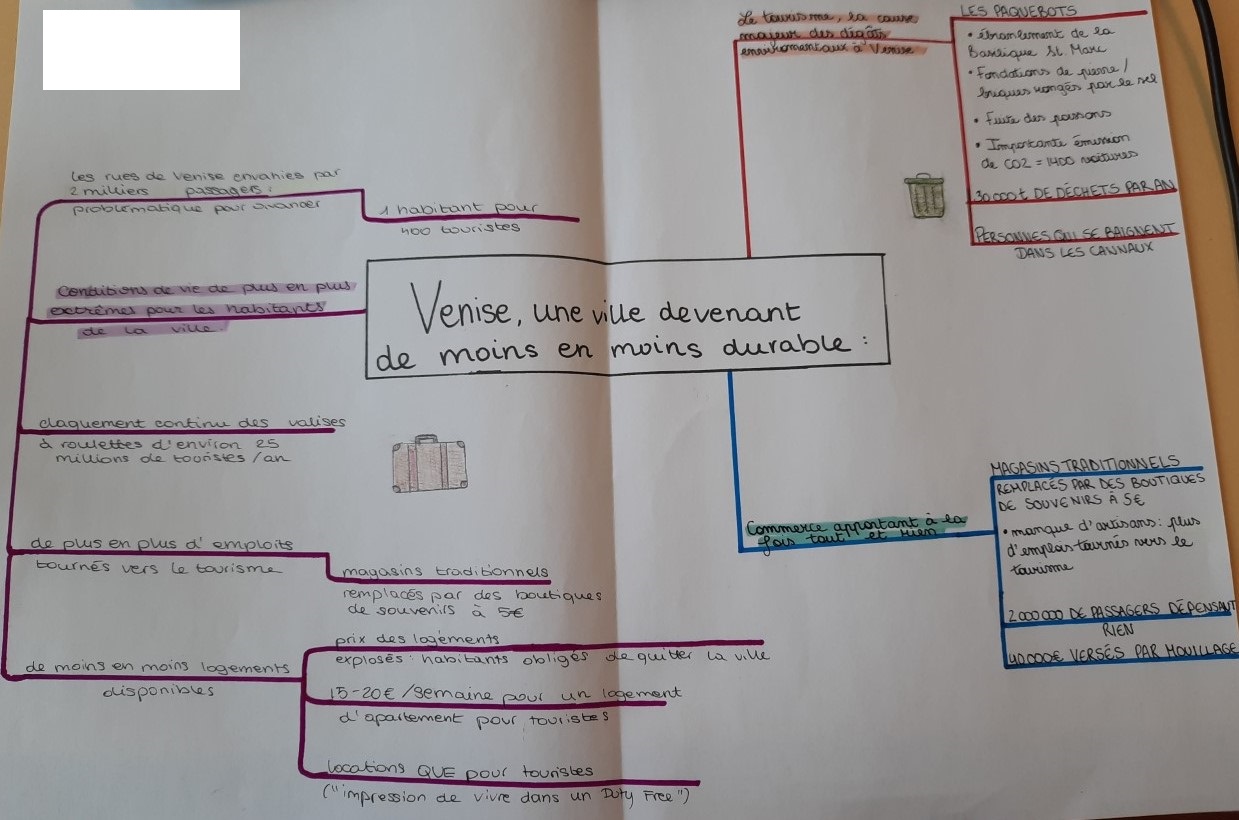 Venise, une ville devenant
de moins en moins durable :
Le tourisme, la cause
majeur des dégâts
environnementaux à Venise
LES PAQUEBOTS
• ébranlement de la
Basilique St. Marc
• Fondations de pierre /
briques rongés par le sel
• Fuite des poissons
• Importante émission
de CO2 = 1400 voitures
30.000t DE DÉCHETS PAR AN
PERSONNES QUI SE BAIGNENT
DANS LES CANNAUX
les rues de Venise envahies par
2 milliers passagers :
problématique pour avancer
1 habitant pour
400 touristes
Conditions de vie de plus en plus
extrêmes pour les habitants
de la ville.
claquement continu des valises
à roulettes d'environ 25
millions de touristes /an
de plus en plus d'emploits
tournés vers le tourisme
magasins traditionnels
remplacés par des boutiques
de souvenirs à 5€
de moins en moins logements
disponibles
prix des logements
explosés : habitants obligés de quitter la ville
15-20€ /semaine pour un logement
d'apartement pour touristes
locations QUE pour touristes
("impression de vivre dans un Duty Free")
Commerce apportant à la
fois tout et rien
MAGASINS TRADITIONNELS
REMPLACÉS PAR DES BOUTIQUES
DE SOUVENIRS À 5€
• manque d'artisans : plus
d'emplois tournés vers le
tourisme
2 000 000 DE PASSAGERS DÉPENSANT
RIEN
40.000€ VERSÉS PAR MOUILLAGE